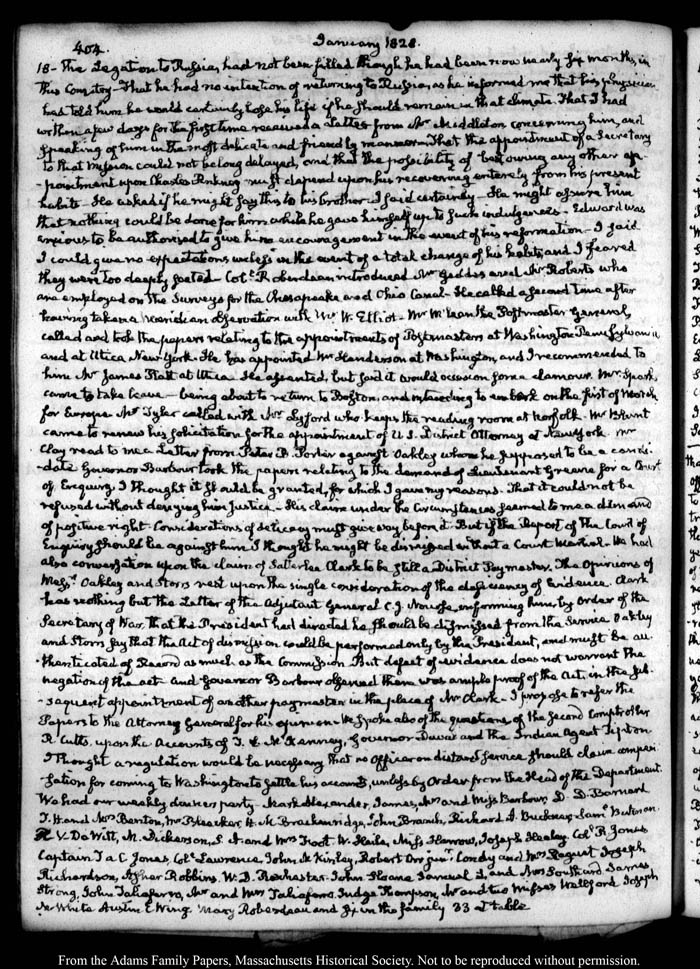 404.
January 1828.
18- The Legation to Russia, had not been filled though he had been now nearly six months, in
this Country - That he had no intention of returning to Russia, as he informed me that his physician
has told him he would certainly lose his life if he should remain in that climate. That I had
within a few days for the first time received a Letter from Mr Middleton concerning him, and
speaking of him in the most delicate and friendly manner. That the appointment of a Secretary
to that mission could not be long delayed, and that the possibility of bestowing any other ap
-pointment upon Charles Pinkney must depend upon his recovering entirely from his present
habits - He asked if he might say this to his brother - I said certainly - He might assure him
that nothing could be done for him while he gave himself up to such indulgences - Edward was
anxious to be authorised to give him encouragement in the event of his reformation - I said
I could give no expectations unless in the event of a total change of his habits, and I feared
they were too deeply seated - Colo. Roberdeau introduced Mr Geddes and Mr Roberts who
are employed on the Surveys for the Chesapeake and Ohio Canal - He called a second time after
having taken a Meridian observation with Mr W. Elliot - Mr McLean the Postmaster General,
called and took the papers relating to the appointments of Postmasters at Washington Pennsylvania
and at Utica New-York. He has appointed Mr Henderson at Washington, and I recommended to
him Mr James Platt at Utica - He assented, but said it would occasion some clamour. Mr Spark,
came to take leave - being about to return to Boston, and intending to embark on the first of March
for Europe - Mr Tyler called with Mr Lyford who keeps the reading room at Norfolk. Mr Blunt
came to renew his solicitation for the appointment of U.S. District Attorney at New York. Mr
Clay read to me a Letter from Peter B. Porter against Oakley whom he supposed to be a candi-
-date. Governor Barbour took the papers relating to the demand of Lieutenant Greene for a Court
of Enquiry. I thought it should be granted, for which I gave my reasons. That it could not be
refused without denying him Justice - His claim under the circumstances seemed to me a demand
of positive right - Considerations of delicacy must give way before it. But if the Report of the Court of
Enquiry should be against him I thought he might be dismissed without a Court Martial. We had
also conversation upon the claim of Satterlee Clark to be still a District Paymaster. The Opinions of
Messrs. Oakley and Storrs rest upon the single consideration of the deficiency of Evidence. Clark
has nothing but the Letter of the Adjutant General C. J. Nourse, informing him, by Order of the
Secretary of War, that the President had directed he should be dismissed from the service. Oakley
and Storrs say that the Act of dismission could be performed only by the President, and must be au-
-thenticated of Record as much as the Commission. But defect of evidence does not warrant the
negation of the act - And Governor Barbour observed there was ample proof of the Act, in the sub
-sequent appointment of another paymaster in the place of Mr Clark - I propose to refer the
Papers to the Attorney General for his opinion - We spoke also of the questions, of the second Comptroller
R Cutts, upon the Accounts of T. L. McKenney, Governor Duval and the Indian Agent Tipton.
I thought a regulation would be necessary that no Officer on distant service should claim compen
-sation for coming to Washington to settle his accounts, unless by Order from the Head of the Department.
We had our weekly dinner party - Mark Alexander, James, Mrs and Miss Barbour, D. D. Barnard
T. H. and Mrs Benton, Mr Bleecker, H. M. Brackenridge, John Branch, Richard A. Buckner, Saml. Butman
V. De Witt, M. Dickerson, S. A. and Mrs Foot, W. Haile, Miss Joseph Healey, Colo. R. Jones
Captain T a C. Jones, Colo. Lawrence, John McKinley, Robert Orr junr. Condy and Mrs Raguet Joseph
Richardson, Asher Robbins, W. B. Rochester, John Sloane Samuel L, and Mrs Southard James
Strong, John Taliaferro, Mr and Mrs Taliaferro, Judge Thompson, Mr and two Misses Wellford Joseph
M. White Austin E Wing Mary Roberdeau and six in the family 33 at table
From the Adams Family Papers, Massachusetts Historical Society. Not to be reproduced without permission.